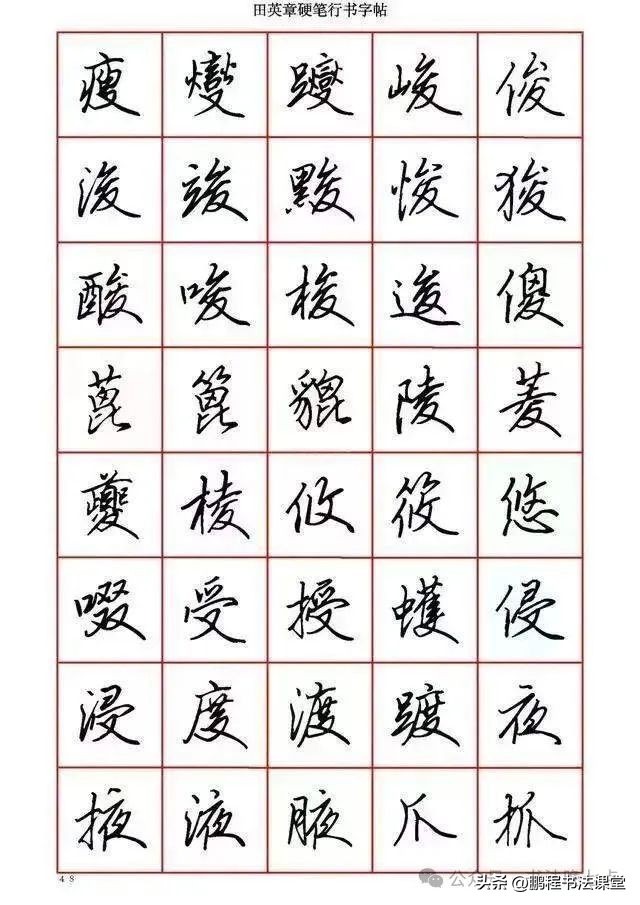 田英章硬笔行书字帖
瘦 燮 躞 峻 俊
浚 竣 黢 悛 狻
酸 唆 梭 逡 傻
蓖 篦 貔 陵 菱
夔 棱 攸 筱 悠
啜 受 授 蠖 侵
浸 度 渡 踱 夜
掖 液 腋 爪 抓
48
头条 @鹏程书法课堂